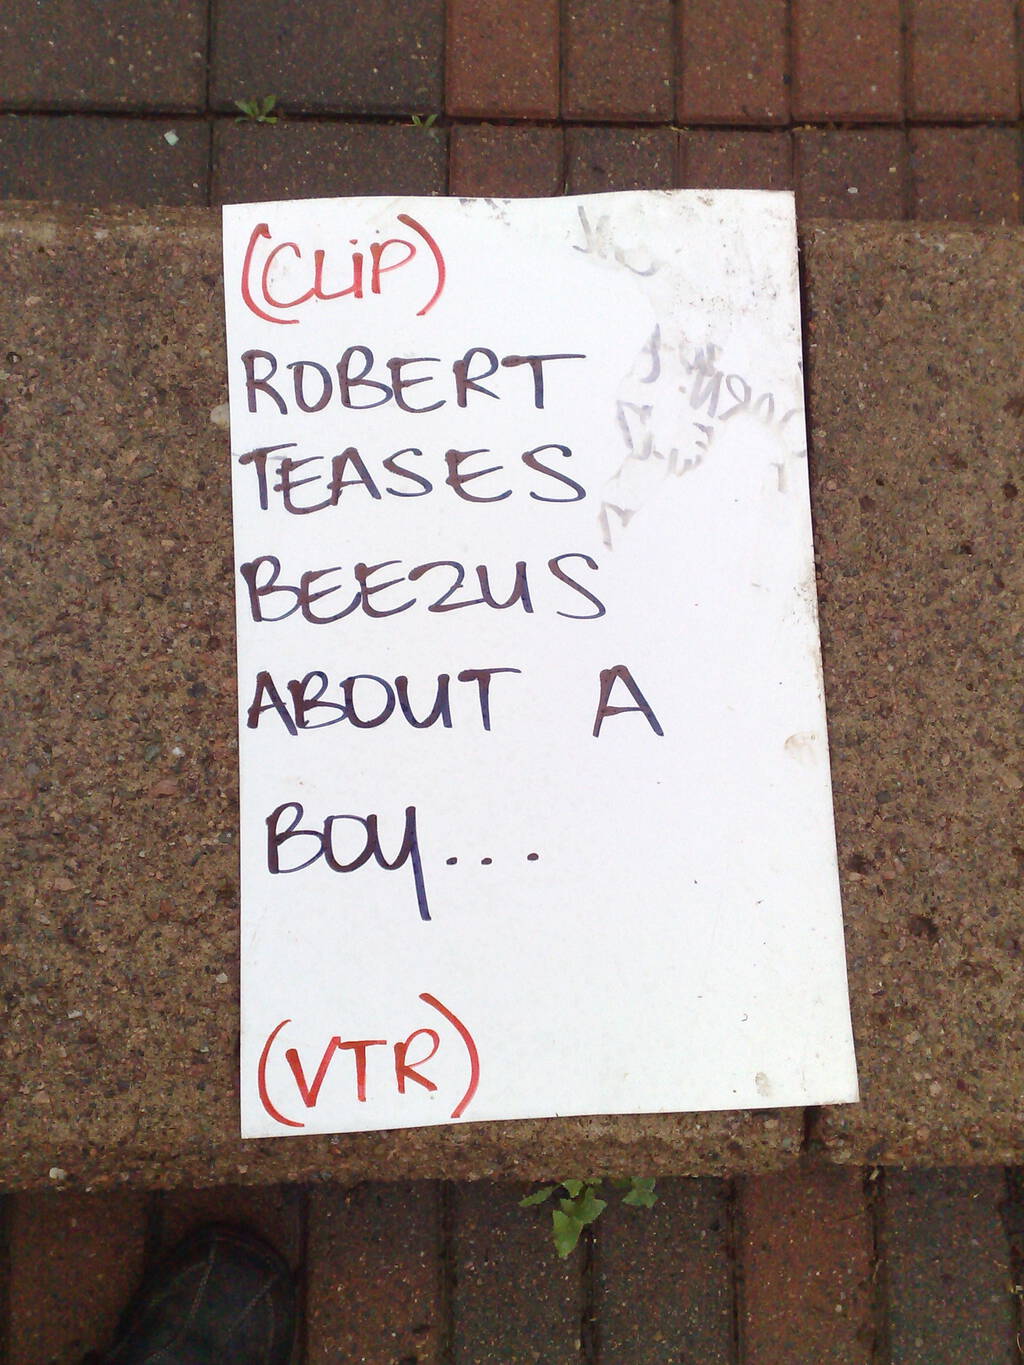 (CLiP)
ROBERT
TEASES
BEEZUS
ABOUT A
BOY...
(VTR)